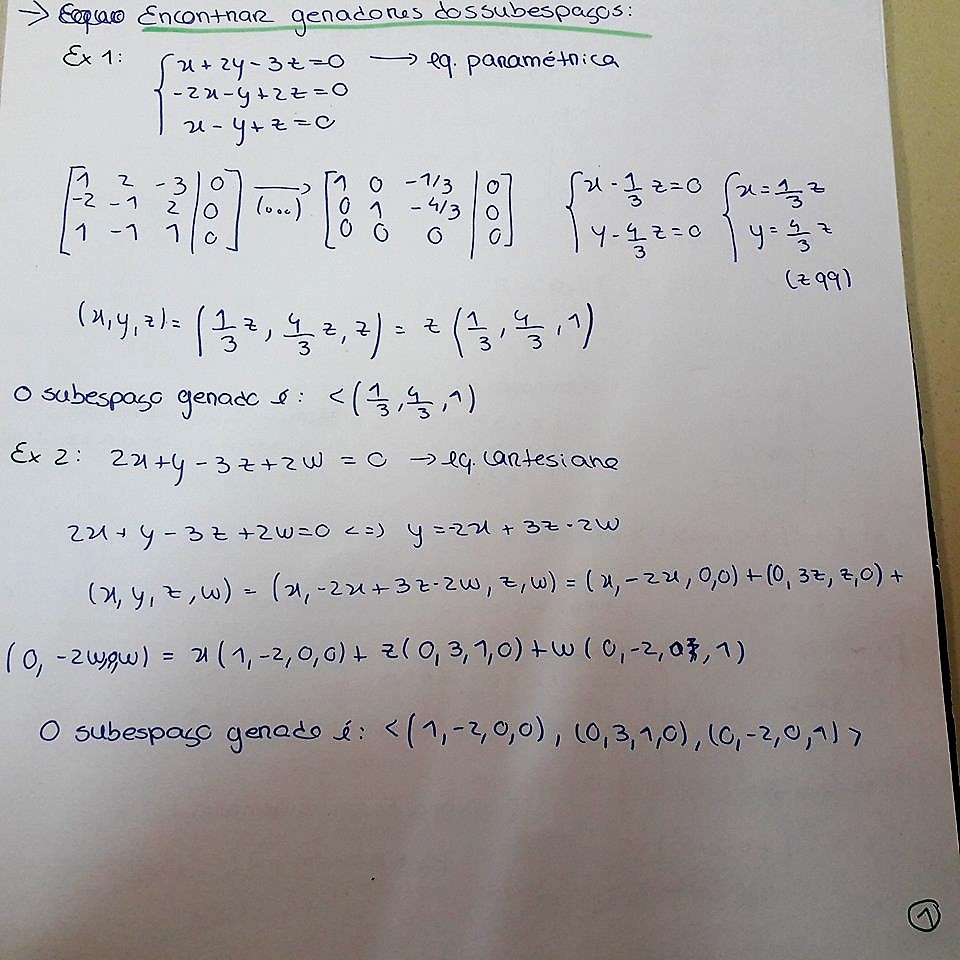 → Encontrar geradores dos subespaços:
Ex 1: { x + 2y - 3z = 0 → eq. paramétrica
-2x - y + 2z = 0
x - y + z = 0
[1 2 -3 | 0] → (...) [1 0 -1/3 | 0] { x - 1/3 z = 0 { x = 1/3 z
[-2 -1 2 | 0] [0 1 -4/3 | 0] y - 4/3 z = 0 y = 4/3 z
[1 -1 1 | 0] [0 0 0 | 0]
(z qq)
(x, y, z) = (1/3 z, 4/3 z, z) = z (1/3, 4/3, 1)
O subespaço gerado é: <(1/3, 4/3, 1)
Ex 2: 2x + y - 3z + 2w = 0 → eq. cartesiana
2x + y - 3z + 2w = 0 <=> y = -2x + 3z - 2w
(x, y, z, w) = (x, -2x + 3z - 2w, z, w) = (x, -2x, 0, 0) + (0, 3z, z, 0) +
(0, -2w, 0, w) = x(1, -2, 0, 0) + z(0, 3, 1, 0) + w(0, -2, 0, 1)
O subespaço gerado é: <(1, -2, 0, 0), (0, 3, 1, 0), (0, -2, 0, 1)>
1